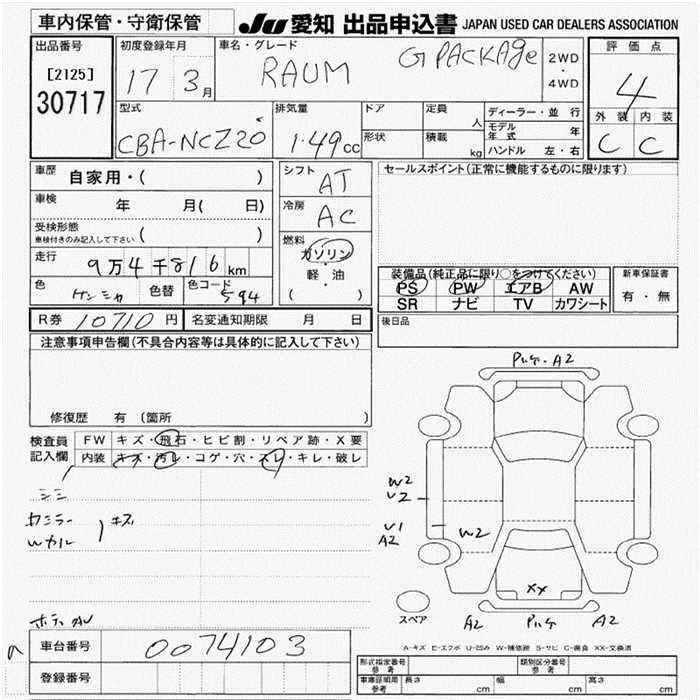 車内保管・守衛保管 JU 愛知 出品申込書 JAPAN USED CAR DEALERS ASSOCIATION
出品番号 初度登録年月 車名・グレード 評価点
[2125] 17 3月 RAUM G PACKAGe 2WD・4WD 4
30717
型式 排気量 ドア 定員 人 ディーラー・並行 外装 内装
CBA-NCZ20 1.49cc 形状 積載 kg モデル年式 年 C C
ハンドル 左・右
車歴 自家用・( ) シフト AT セールスポイント(正常に機能するものに限ります)
車検 年 月( 日) 冷房 AC
受検形態
車検付きのみ記入して下さい ( )
燃料 ガソリン
走行 9万4千816km 軽・油
( )
装備品(純正品に限り○をつけてください) 新車保証書
色 色替 色コード 594 PS PW エアB AW 有・無
SR ナビ TV カワシート
R券 10710円 名変通知期限 月 日 後日品
注意事項申告欄(不具合内容等は具体的に記入して下さい)
修復歴 有 (箇所 )
検査員記入欄 FW キズ・飛石・ヒビ割・リペア跡・X要
内装 キズ・汚レ・コゲ・穴・スレ・キレ・破レ
A2
W2
U2
U1
A2
W2
XX
キズ
スペア A2 A2
A-キズ E-エクボ U-凹み W-補修跡 S-サビ C-腐食 XX-交換済
車台番号 0074103
登録番号
形式指定番号 参考 類別区分番号 参考
車庫証明用 参考 長さ cm 幅 cm 高さ cm